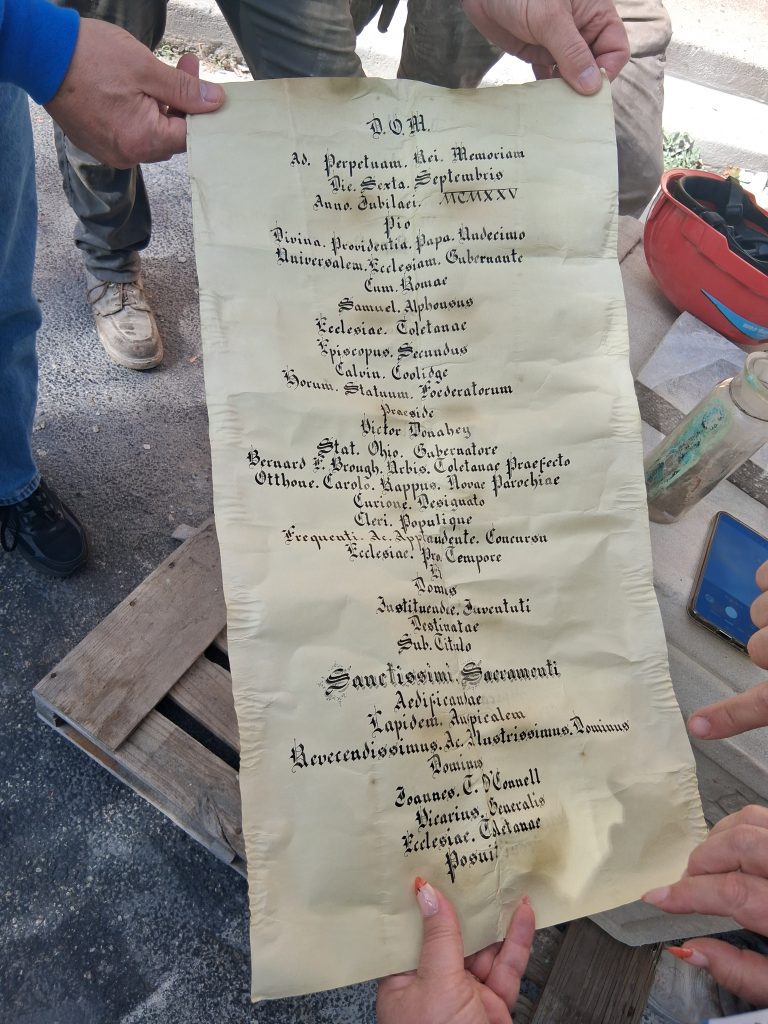 D.O.M.
Ad. Perpetuam. Rei. Memoriam
Die. Sexta. Septembris
Anno. Jubilaei. MCMXXV
Pio
Divina. Providentia. Papa. Undecimo
Universalem. Ecclesiam. Gubernante
Cum. Romae
Samuel. Alphonsus
Ecclesiae. Toletanae
Episcopus. Secundus
Calvin. Coolidge
Horum. Statuum. Foederatorum
Praeside
Victor Donahey
Stat. Ohio. Gubernatore
Bernard F. Brough. Urbis. Toletanae Praefecto
Otthone. Carolo. Rappus. Novae Parochiae
Curione. Designato
Cleri. Populique
Frequenti. Ac. Applaudente. Concursu
Ecclesiae. Pro. Tempore
Domis
Instituendae. Juventuti
Destinatae
Sub. Titulo
Sanctissimi. Sacramenti
Aedificandae
Lapidem. Auspicalem
Reverendissimus. Ac. Illustrissimus. Dominus
Dominus
Joannes. T. O'Connell
Vicarius. Generalis
Ecclesiae. Toletanae
Posuit